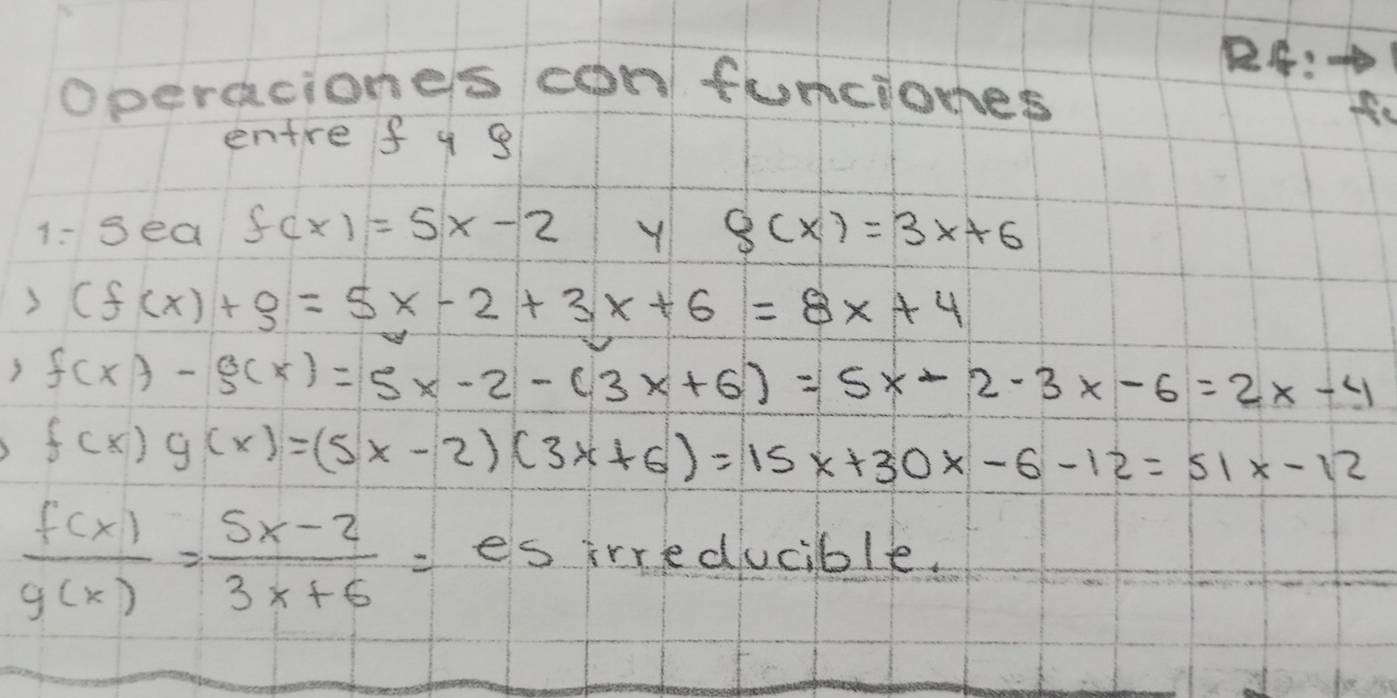 Rf: →
Operaciones con funciones
entre f y g
1.- Sea f(x) = 5x - 2 y g(x) = 3x + 6
> (f(x) + g = 5x - 2 + 3x + 6 = 8x + 4
> f(x) - g(x) = 5x - 2 - (3x + 6) = 5x - 2 - 3x - 6 = 2x - 4
> f(x) g(x) = (5x - 2)(3x + 6) = 15x + 30x - 6 - 12 = 51x - 12
f(x)/g(x) = 5x - 2/3x + 6 = es irreducible.